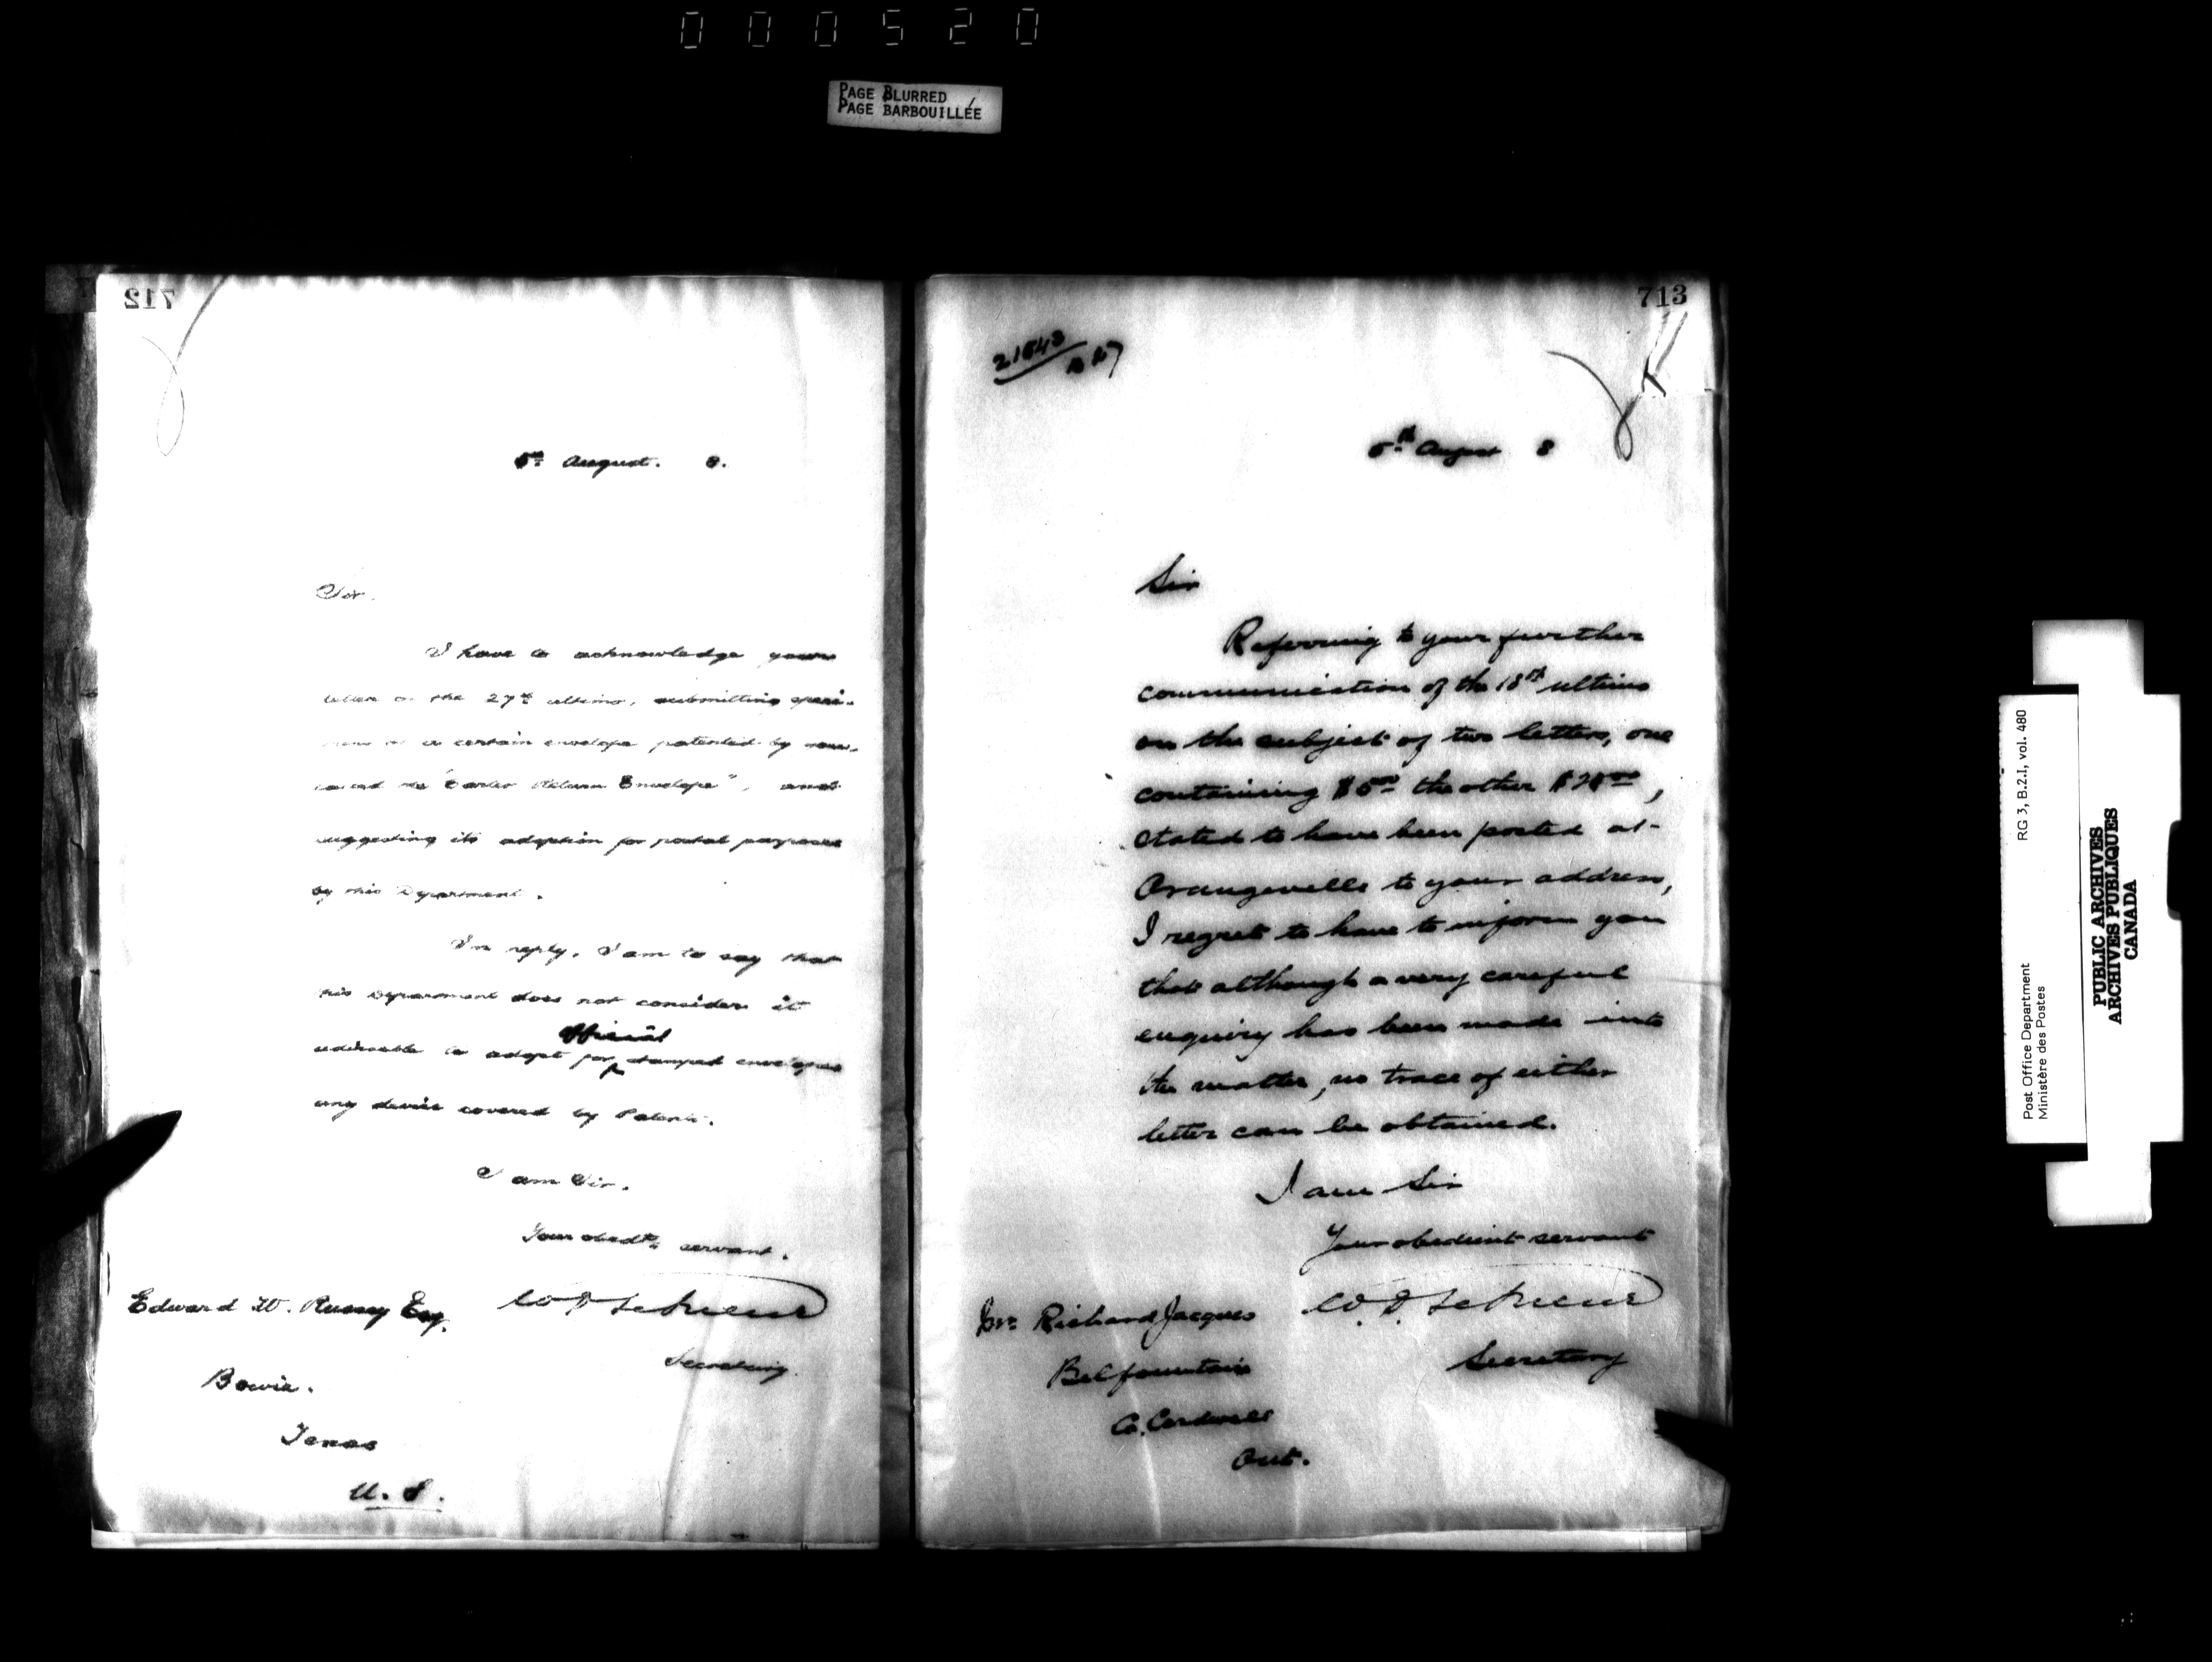 000520
PAGE BLURRED
PAGE BARBOUILLÉE
712
5th August. 8.
Sir.
I have to acknowledge your
letter of the 27th ultimo, submitting speci-
mens of a certain envelope patented by you,
called the " Return Envelope", and
suggesting its adoption for postal purposes
by this Department.
In reply, I am to say that
this Department does not consider it
advisable to adopt for official stamped envelopes
any device covered by Patent.
I am Sir.
Your obedt. servant.
Edward W. Esq.
Secretary.
Bowie.
Texas
U. S.
713
5th August 8
Sir
Referring to your further
communication of the 18th ultimo
on the subject of two letters, one
containing $5.00 the other ,
stated to have been posted at
Orangeville to your address,
I regret to have to inform you
that although a very careful
enquiry has been made into
the matter, no trace of either
letter can be obtained.
I am Sir
Your obedient servant
Mr. Richard Jacques
Secretary
Belfountain
Co. Cardwell
Ont.
Post Office Department
Ministère des Postes
RG 3, B.2.I, vol. 480
PUBLIC ARCHIVES
ARCHIVES PUBLIQUES
CANADA